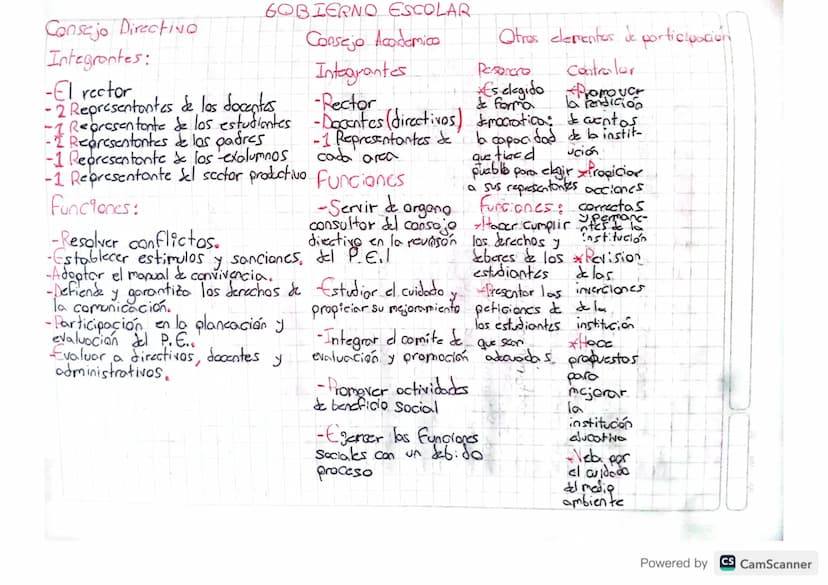 GOBIERNO ESCOLAR
Consejo Directivo
Integrantes:
-El rector
-2 Representantes de los docentes
-1 Representante de los estudiantes
-2 Representantes de los padres
-1 Representante de los exalumnos
-1 Representante del sector productivo
Funciones:
-Resolver conflictos.
-Establecer estimulos y sanciones.
-Adoptar el manual de convivencia.
-Defiende y garantiza los derechos de
la comunicación.
-Participación en la planeación y
evaluación del P.E..
-Evaluar a directivos, docentes y
administrativos.
Consejo Academico
Integrantes
-Rector
-Docentes (directivos)
-1 Representantes de
cada area
Funciones
-Servir de organo
consultor del consejo
directivo en la revisión
del P.E.I
-Estudiar el cuidado y
propiciar su mejoramiento
-Integrar el comite de
evaluación y promoción
-Promover actividades
de beneficio social
-Ejercer las funciones
sociales con un debido
proceso
Otros elementos de participación
Personero
*Es elegido
de forma
democratica:
la capacidad
que tiene el
pueblo para elegir
a sus representantes
Funciones:
*Hacer cumplir
los derechos y
deberes de los
estudiantes
-Presentar las
peticiones de
los estudiantes
que sean
adecuadas
Contralor
*Promover
la rendición
de cuentas
de la instit-
ución
*Propiciar
acciones
correctas
y permane-
ntes de la
institución
*Revision
de las
inverciones
de la
institución
*Hace
propuestas
para
mejorar
la
institución
educativa
*Vela por
el cuidado
del medio
ambiente
Powered by CS CamScanner